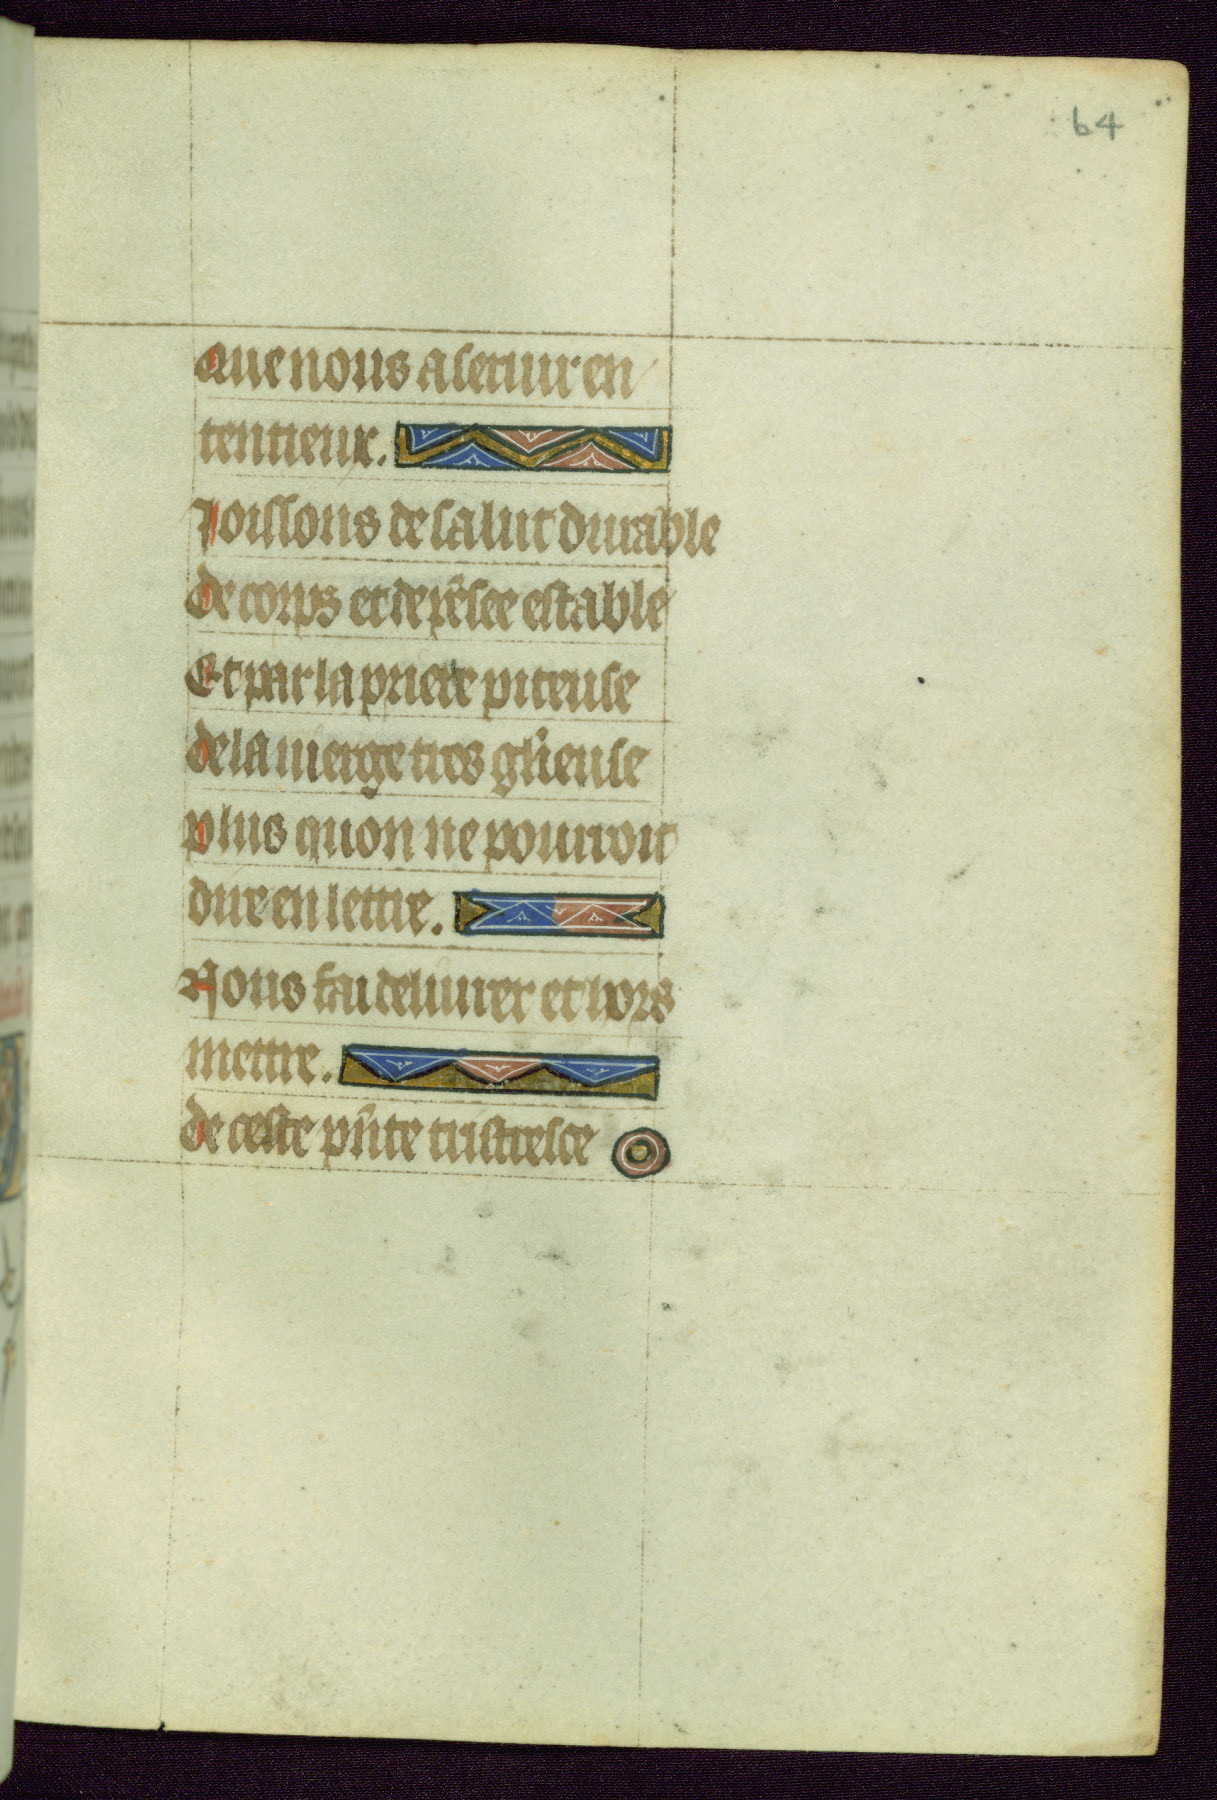 64
Que nous a seruir en
tentieux.
Joissons de salut durable
De corps et de pēsee estable
Et par la priere piteuse
De la uierge tres gl̄ieuse
Plus quon ne pourroit
dire en lettre.
Nous fai deliurer et hors
mettre.
De ceste p̄nte tristresce